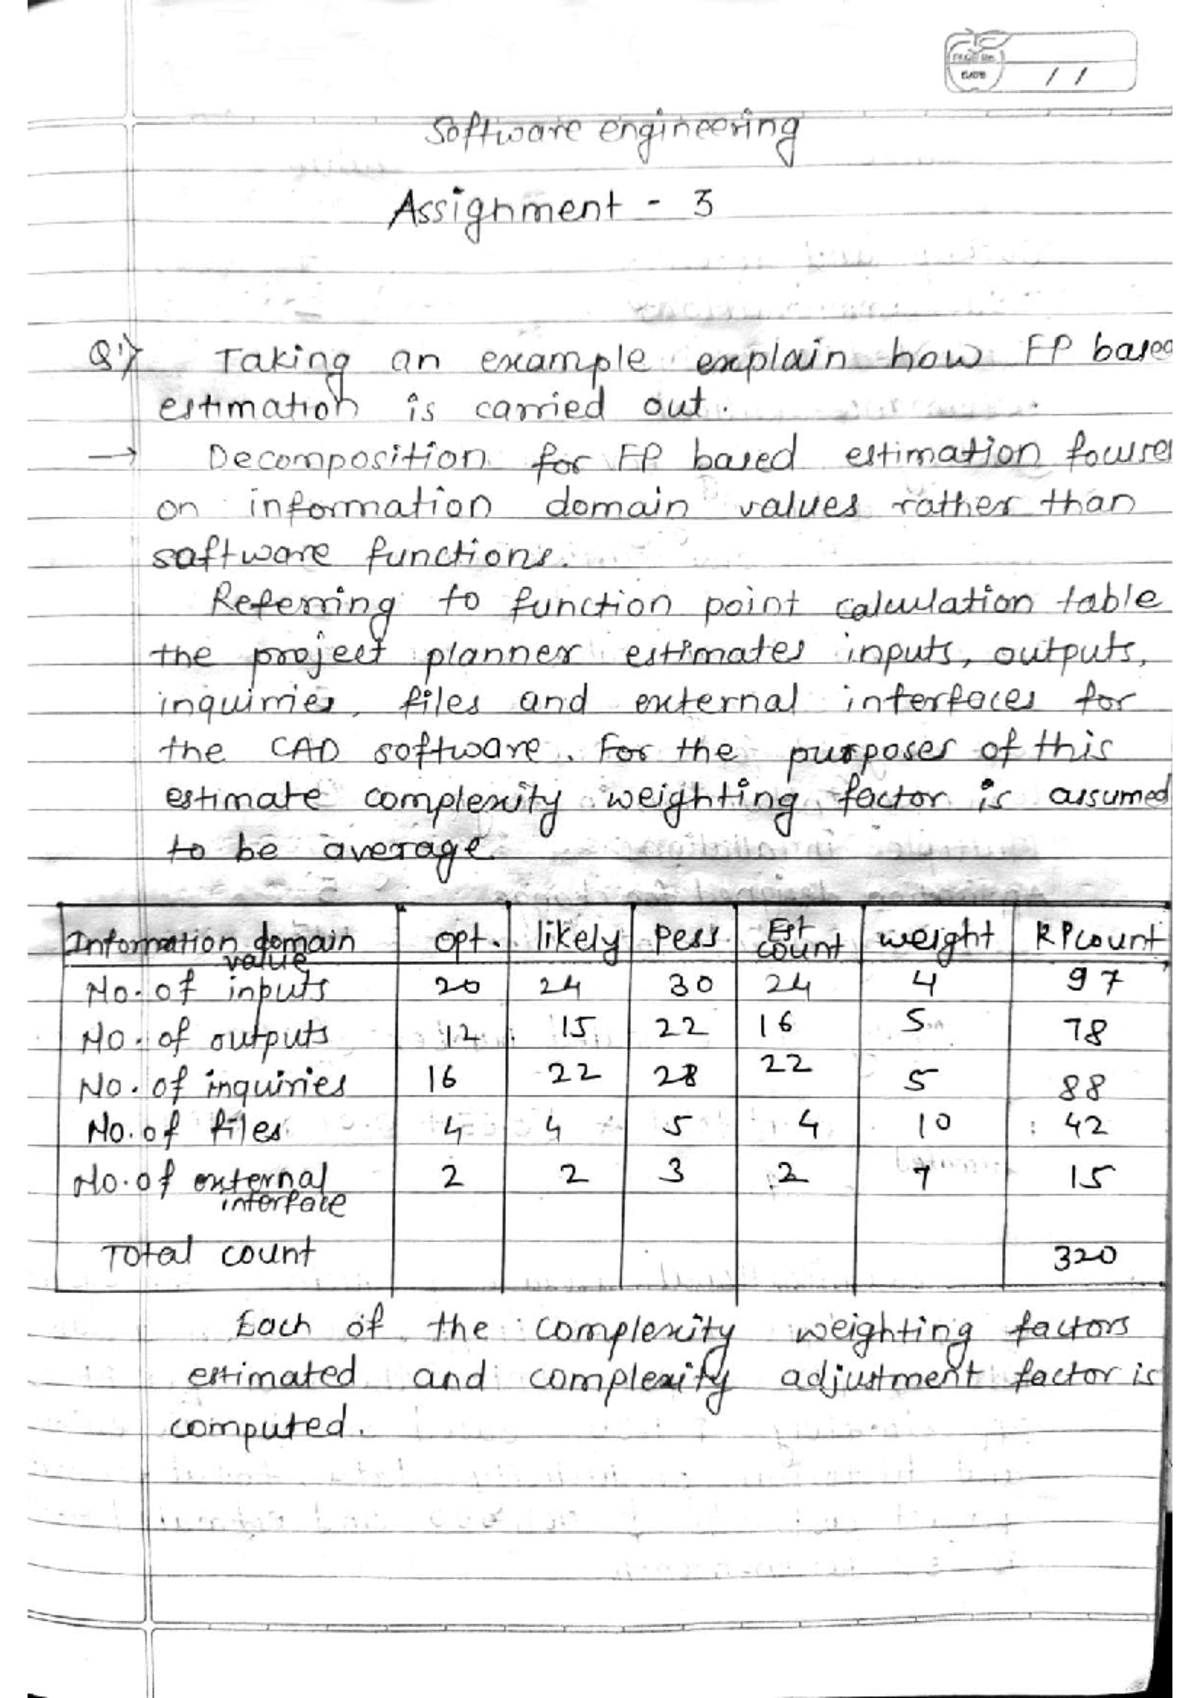 Software engineering
Assignment - 3
Q1) Taking an example explain how FP based
estimation is carried out.
→ Decomposition for FP based estimation focuses
on information domain values rather than
software functions.
Referring to function point calculation table
the project planner estimates inputs, outputs,
inquiries, files and external interfaces for
the CAD software. For the purposes of this
estimate complexity weighting factor is assumed
to be average.
Information domain value opt. likely Pess. Est count weight FP count
No. of inputs 20 24 30 24 4 97
No. of outputs 12 15 22 16 5 78
No. of inquiries 16 22 28 22 5 88
No. of files 4 4 5 4 10 42
No. of external interface 2 2 3 2 7 15
Total count 320
Each of the complexity weighting factors
estimated and complexity adjustment factor is
computed.